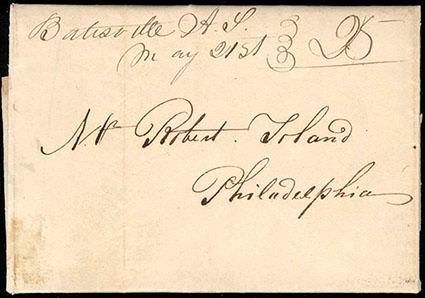 Batesville A. S.
May 21st 25
Mr Robert Toland
Philadelphia